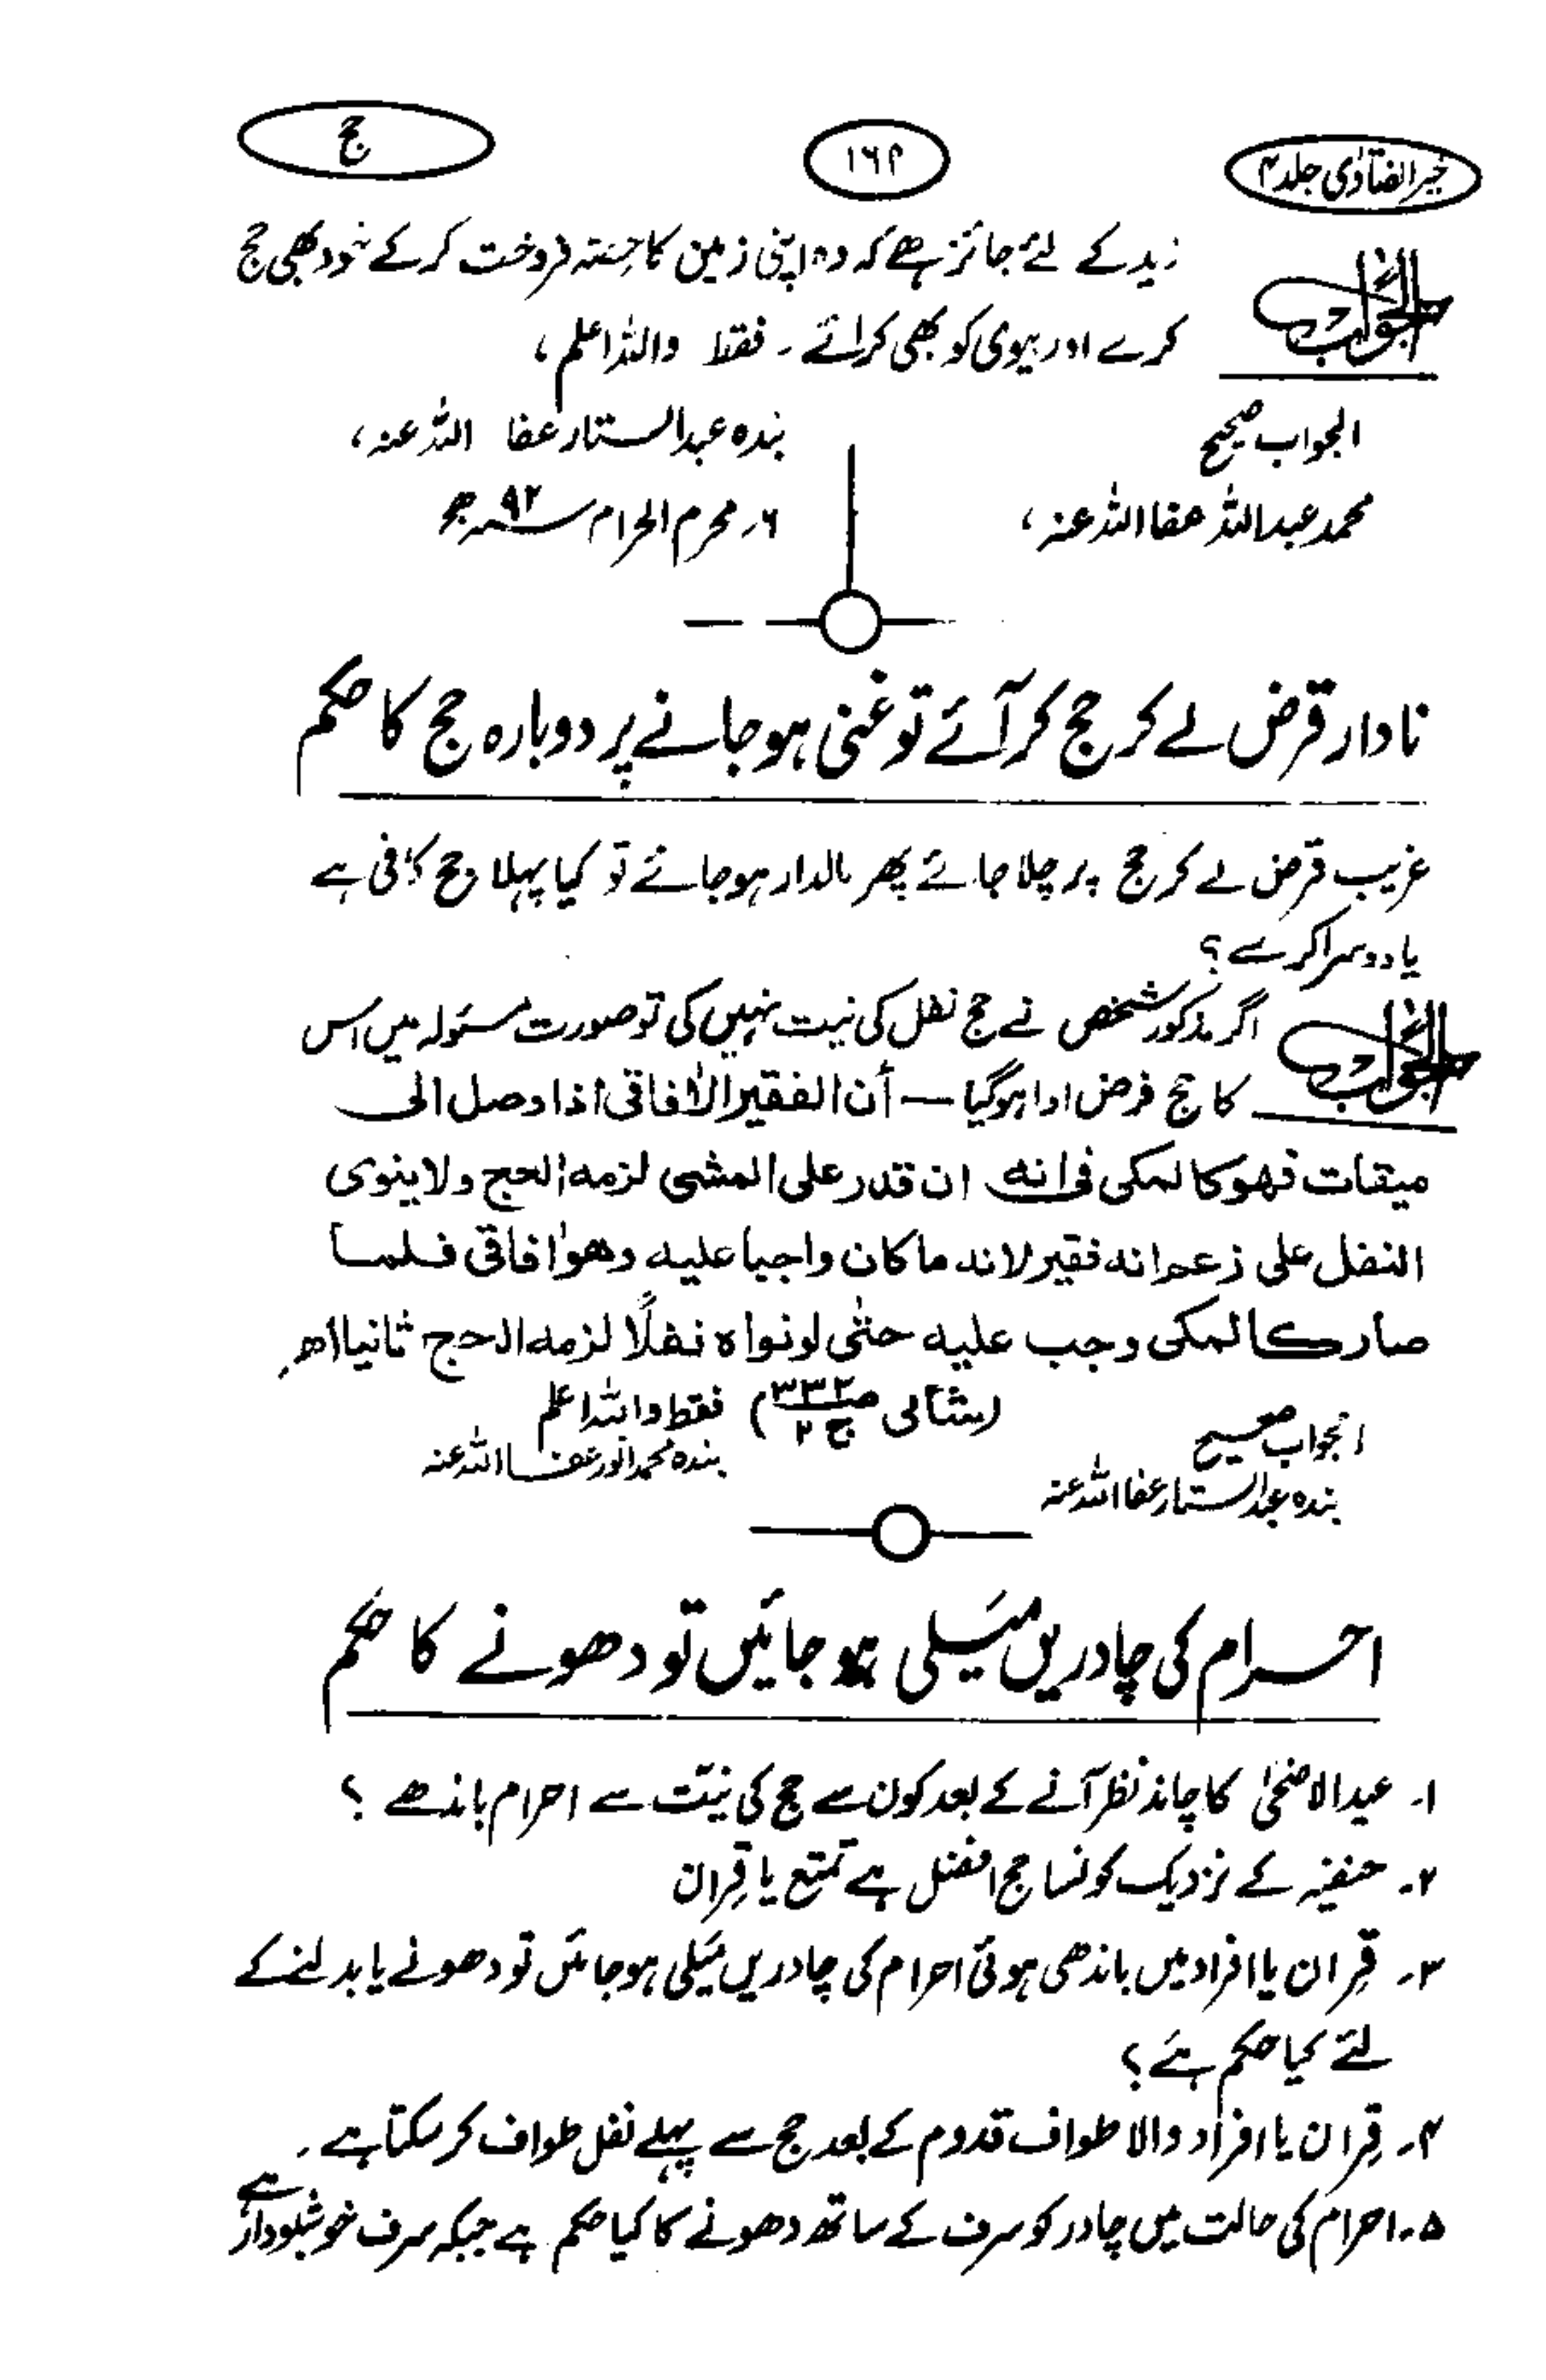 خیر الفتاوٰی جلد ۴
۱۶۹
حج
الجواب
زید کے لئے جائز ہے کہ وہ اپنی زمین کا حصّہ فروخت کر کے خود بھی حج
کرے اور بیوی کو بھی کرائے ۔ فقط واللہ اعلم ،
الجواب صحیح
بندہ عبدالستار عفا اللہ عنہ ،
محمد عبداللہ عفا اللہ عنہ ،
۶ ۔ محرم الحرام سنہ ۹۲ ھ
نادار قرض لے کر حج کر آئے تو غنی ہو جانے پر دوبارہ حج کا حکم
غریب قرض لے کر حج پر چلا جائے پھر مالدار ہو جائے تو کیا پہلا حج کافی ہے
یا دوسرا کرے ؟
الجواب
اگر مذکور شخص نے حج نفل کی نیت نہیں کی تو صورت مسئولہ میں اس
کا حج فرض ادا ہو گیا — أن الفقیر الاٰفاقی اذا وصل الی
میقات فهو کالمکی فی انه ان قدر علی المشی لزمه الحج ولا ینوی
النفل علی زعم انه فقیر لانه ما کان واجبا علیه وهو اٰفاقی فلما
صار کالمکی وجب علیه حتٰی لو نواه نفلًا لزمه الحج ثانیا اھ
(شامی ص ۳۳۲ ج ۲) فقط واللہ اعلم
الجواب صحیح
بندہ محمد انور عفا اللہ عنہ
بندہ عبدالستار عفا اللہ عنہ
احرام کی چادریں میَلی ہو جائیں تو دھونے کا حکم
۱ ۔ عید الاضحیٰ کا چاند نظر آنے کے بعد کون سے حج کی نیّت سے احرام باندھے ؟
۲ ۔ حنفیہ کے نزدیک کونسا حج افضل ہے تمتع یا قِران
۳ ۔ قِران یا افراد میں باندھی ہوئی احرام کی چادریں میَلی ہو جائیں تو دھونے یا بدلنے کے
لئے کیا حکم ہے ؟
۴ ۔ قِران یا افراد والا طواف قدوم کے بعد حج سے پہلے نفل طواف کر سکتا ہے ۔
۵ ۔ احرام کی حالت میں چادر کو سرف کے ساتھ دھونے کا کیا حکم ہے جبکہ سرف خوشبودار ہے